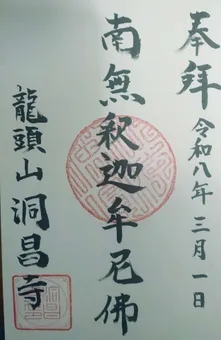 奉拜
令和八年三月一日
南無釈迦牟尼佛
龍頭山洞昌寺